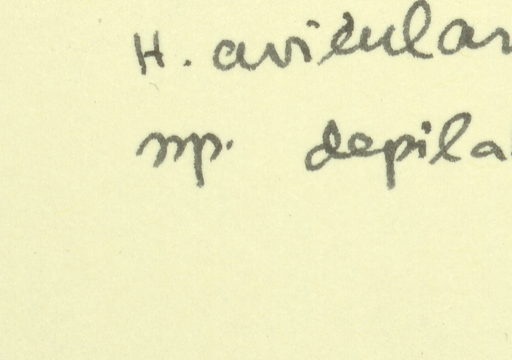 H. avicular
ssp. depila